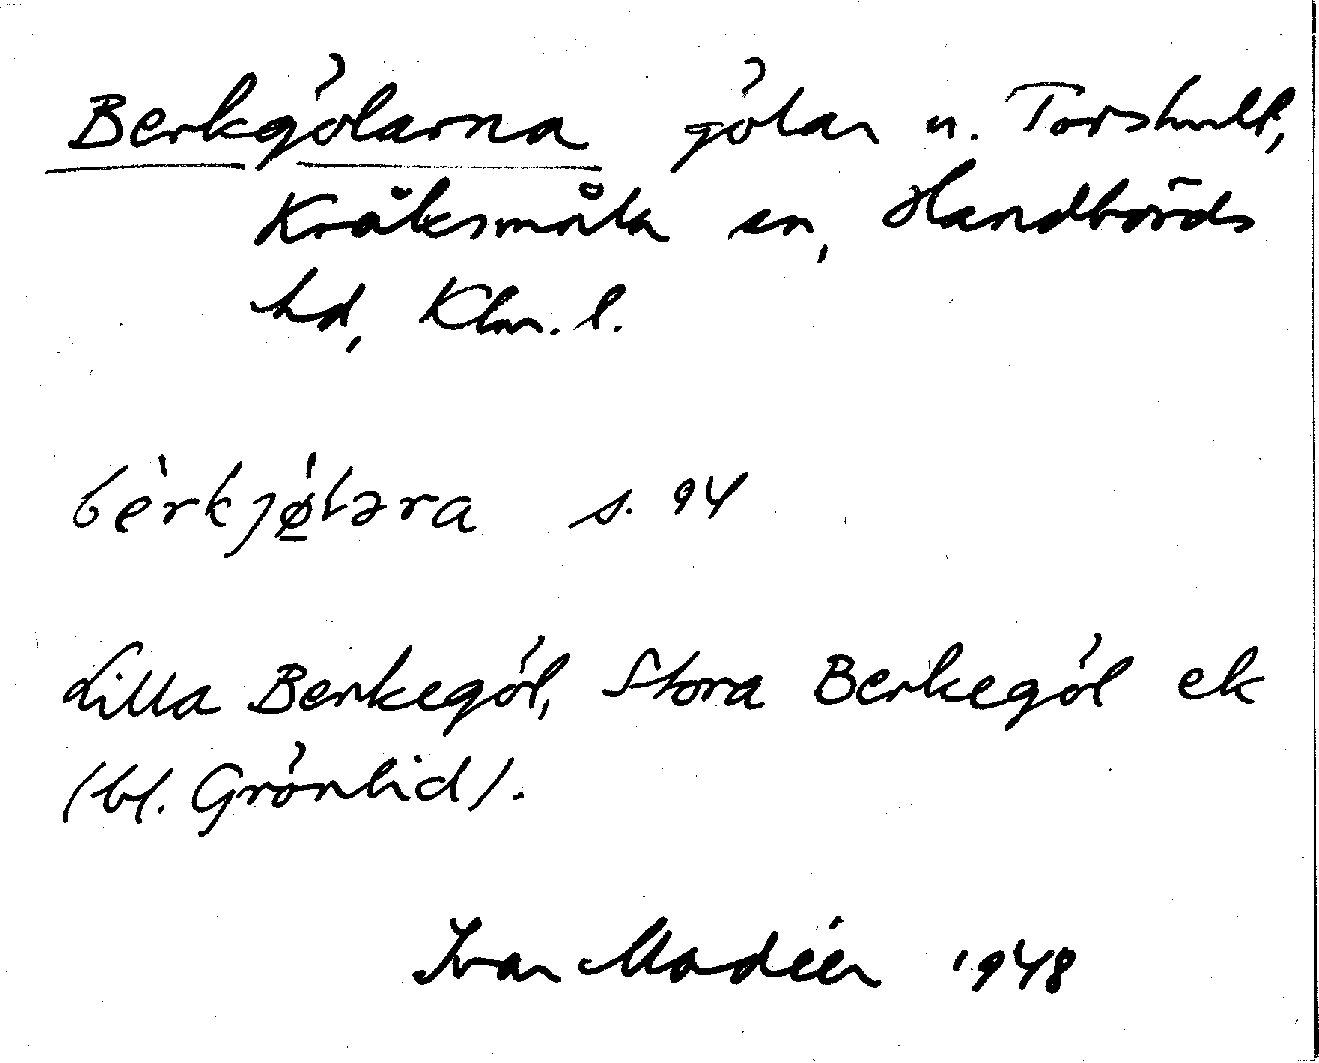 Berkgölarna gölar n. Torshult,
Kråksmåla sn, Handbörds
hd, Klm. l.
bèrkjø̠ləra s. 94
Lilla Berkegöl, Stora Berkegöl ek
(bl. Grönlid).
Ivar Modéer 1948